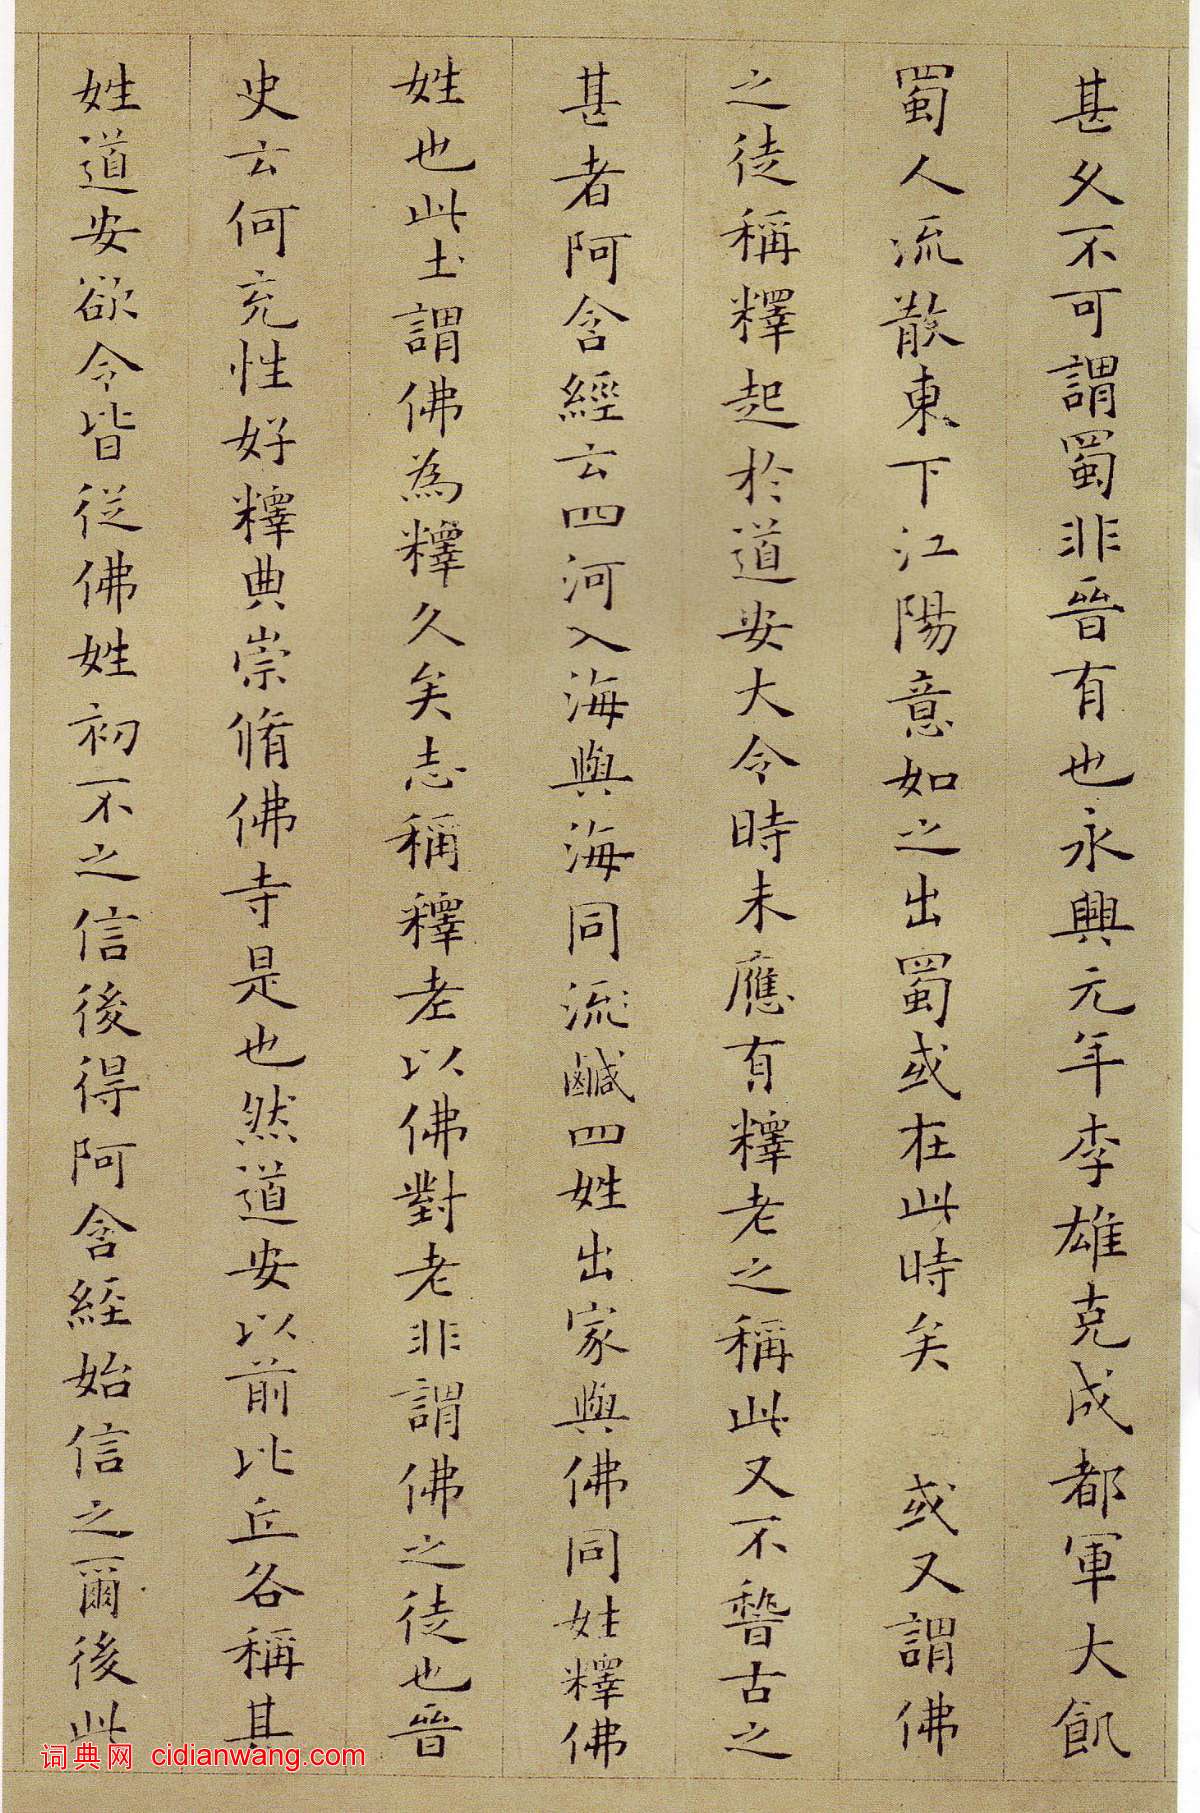 甚久不可謂蜀非晉有也永興元年李雄克成都軍大飢
蜀人流散東下江陽意如之出蜀或在此時矣 或又謂佛
之徒稱釋起於道安大令時未應有釋老之稱此又不稽古之
甚者阿含經云四河入海與海同流鹹四姓出家與佛同姓釋佛
姓也此土謂佛為釋久矣志稱釋老以佛對老非謂佛之徒也晉
史云何充性好釋典崇脩佛寺是也然道安以前比丘各稱其
姓道安欲令皆從佛姓初不之信後得阿含經始信之爾後此
词典网 cidianwang.com